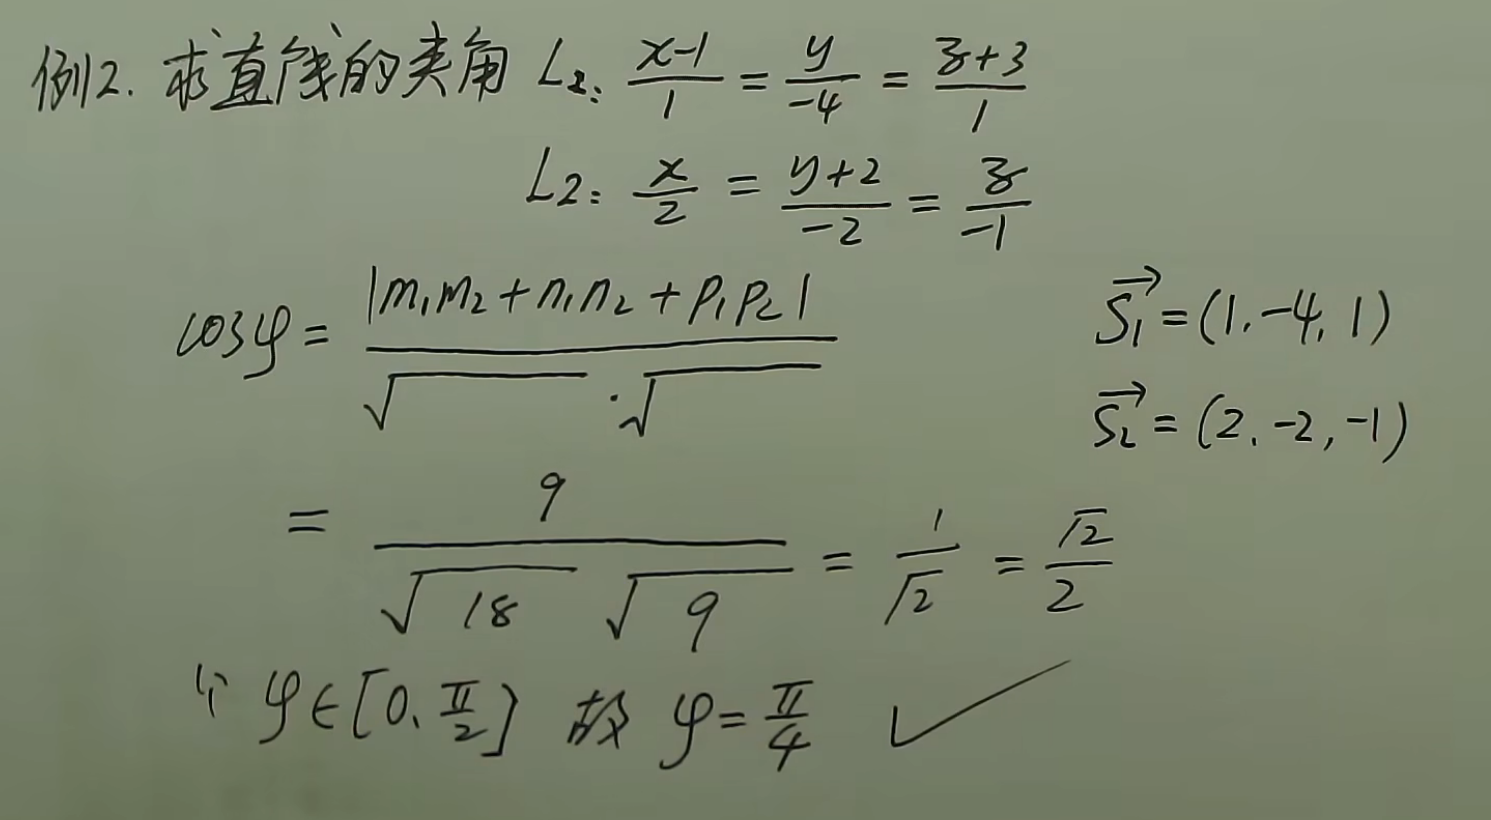 例2. 求直线的夹角 L₂: (x-1)/1 = y/(-4) = (z+3)/1
L2: x/2 = (y+2)/(-2) = z/(-1)
cosφ = |m₁m₂+n₁n₂+p₁p₂| / (√ · √)
S₁→ = (1, -4, 1)
S₂→ = (2, -2, -1)
= 9/(√18 √9) = 1/√2 = √2/2
∵ φ∈[0, π/2] 故 φ = π/4 ✓